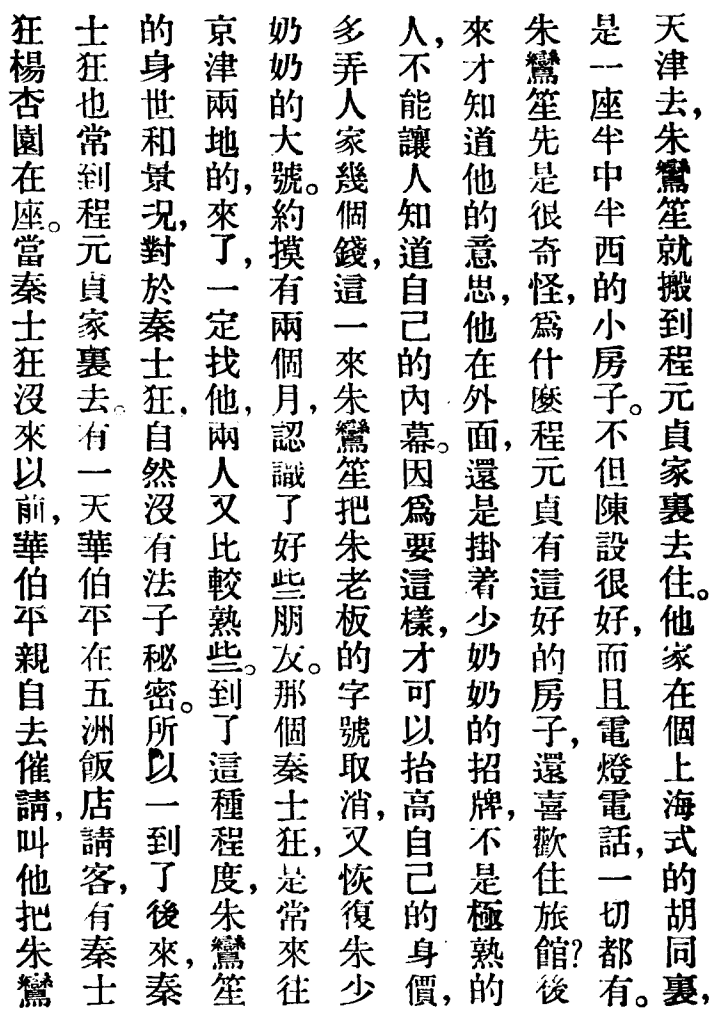 天津去，朱鸞笙就搬到程元貞家裏去住。他家在個上海式的胡同裏，
是一座半中半西的小房子。不但陳設很好，而且電燈電話，一切都有。
朱鸞笙先是很奇怪，爲什麽程元貞有這好的房子，還喜歡住旅館？後
來才知道他的意思，他在外面，還是掛着少奶奶的招牌，不是極熟的
人，不能讓人知道自己的內幕。因爲要這樣，才可以抬高自己的身價，
多弄人家幾個錢，這一來朱鸞笙把朱老板的字號取消，又恢復朱少
奶奶的大號。約摸有兩個月，認識了好些朋友。那個秦士狂，是常來往
京津兩地的，來了，一定找他，兩人又比較熟些。到了這種程度，朱鸞笙
的身世和景况，對於秦士狂，自然沒有法子秘密。所以一到了後來，秦
士狂也常到程元貞家裏去。有一天華伯平在五洲飯店請客，有秦士
狂楊杏園在座。當秦士狂沒來以前，華伯平親自去催請，叫他把朱鸞